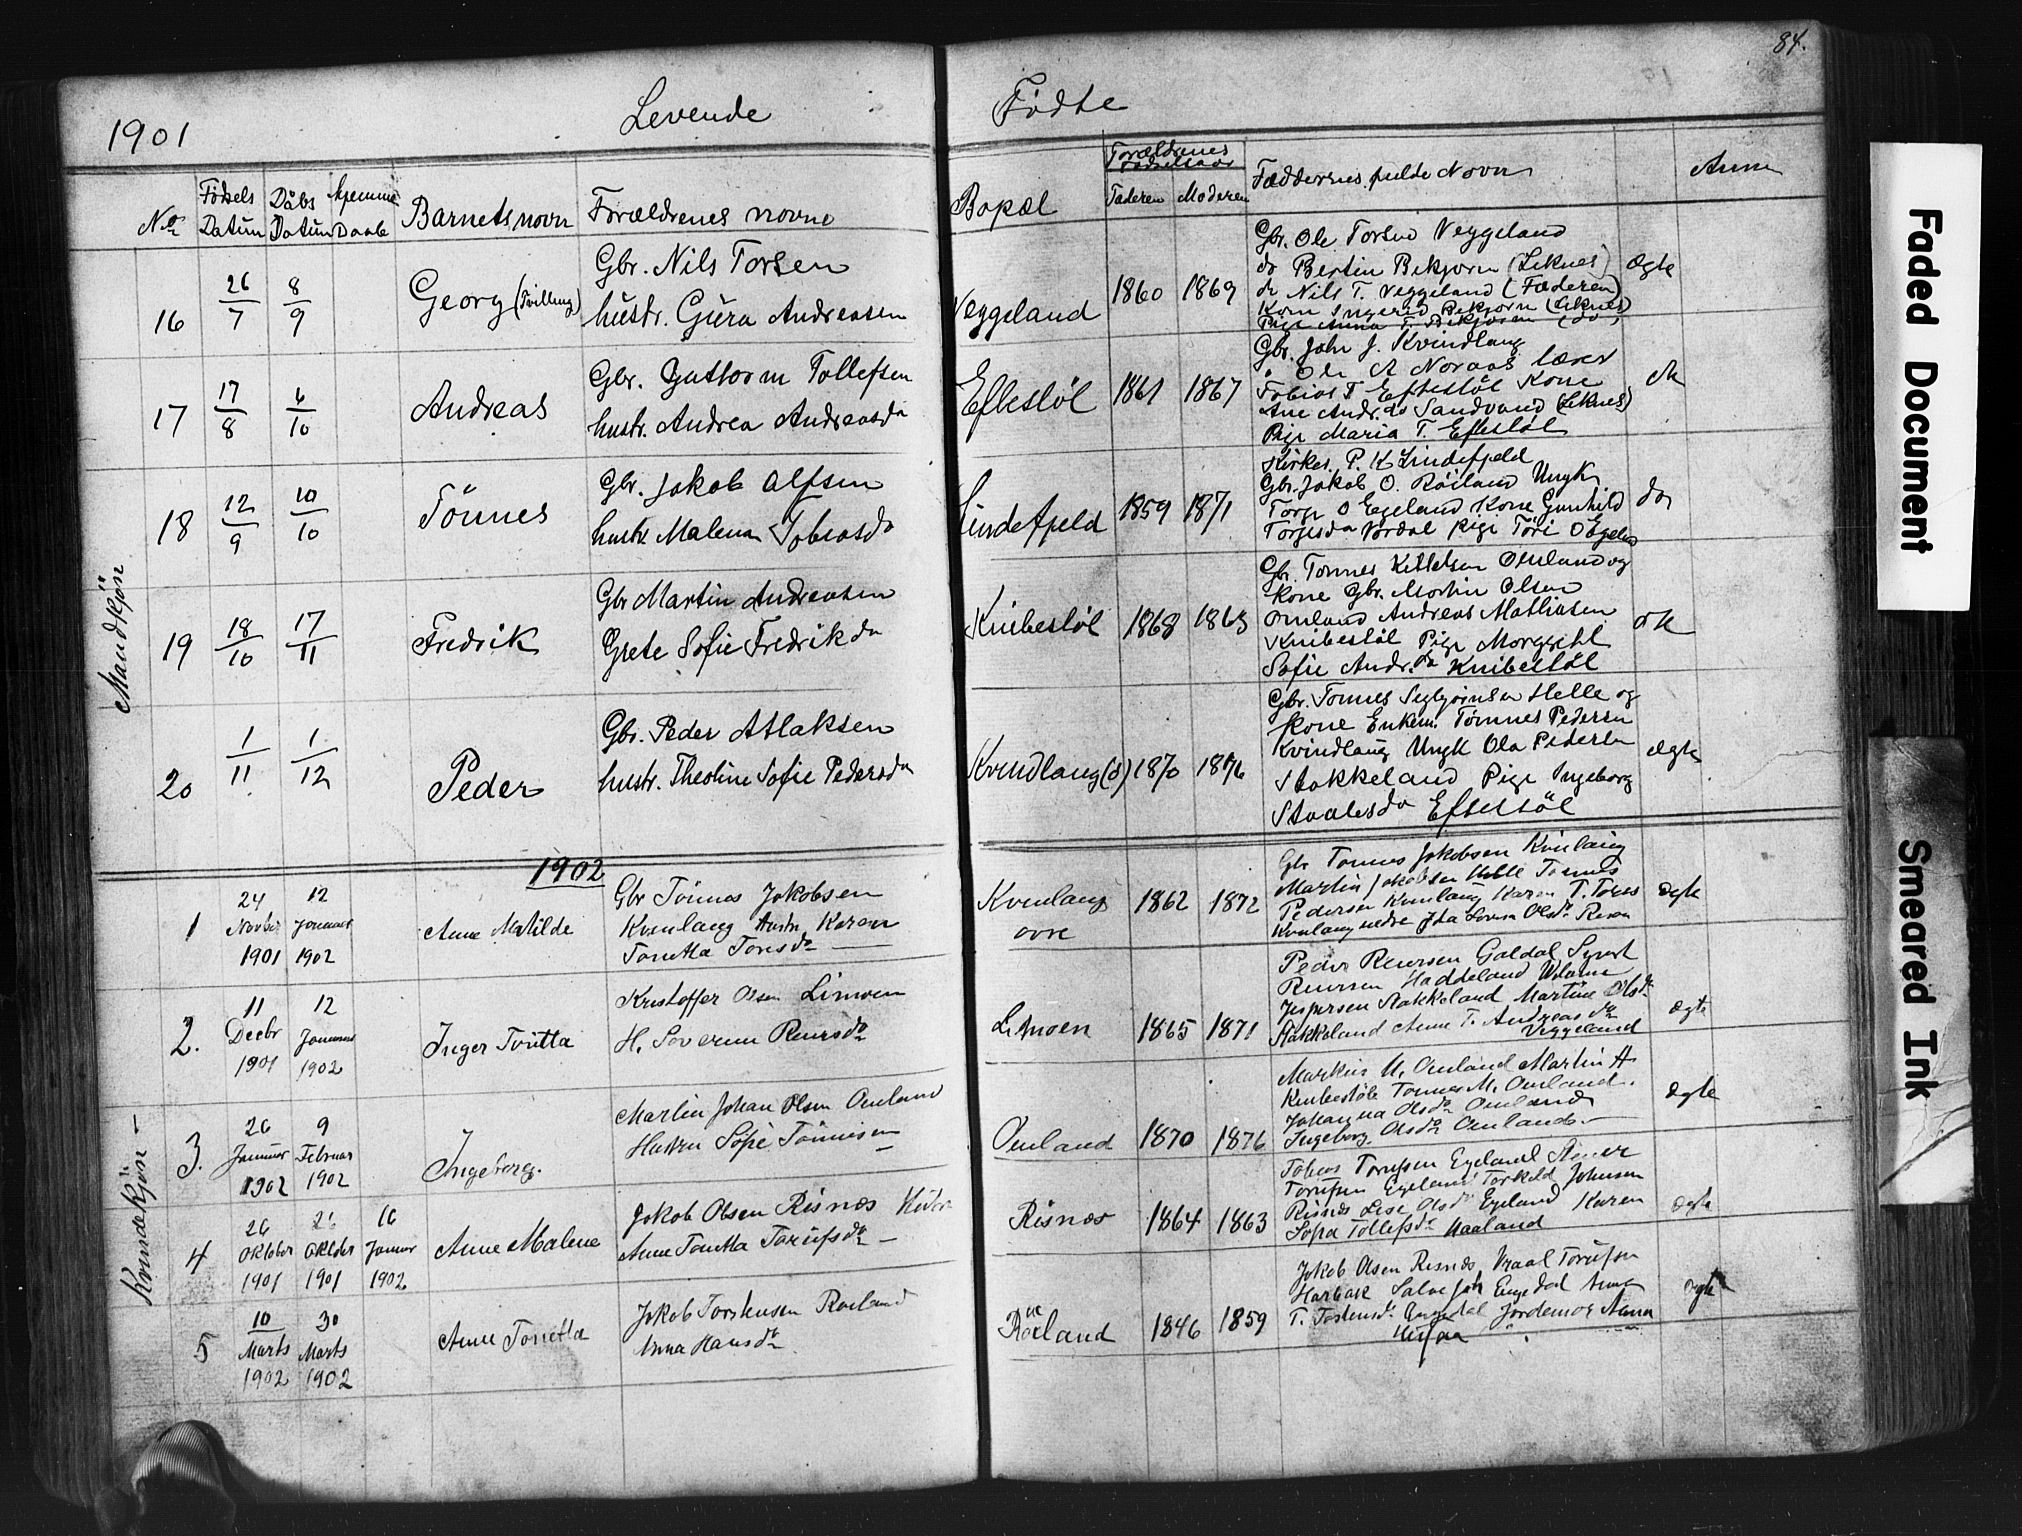 84.
1901 Levende Fødte
No Fødsels Datum Dåbs Datum Hjemme Daab Barnets novn Forældrenes novne Bopæl Forældrenes Fødselsaar Faderen Moderen Fæddernes fulde Novn Anm
Mandkjön
16 26/7 8/9 Georg (Tvilling) Gbr. Nils Torsen
hustr. Gura Andreasen
Veggeland 1860 1869
Gbr. Ole Torsen Veggeland
do Bertin Bekjorn (Leknes)
do Nils T. Veggeland (Faderen)
Kone Ingerid Bekjorn (Leknes)
Pige Anna T. Bekjorn (do)
Ægte
17 17/8 6/10 Andreas Gbr. Guttorm Tollefsen
hustr. Andrea Andreasda
Eftestöl 1861 1867
Gbr. John J. Kvindlaug
Ole A Noraas lærer
Tobias T Eftestöl Kone
Ane Andr.da Sandvand (Leknes)
Pige Maria T. Eftestöl
18 12/9 10/10 Tönnes Gbr. Jakob Alfsen
hustr Malena Tobiasda
Lindefjeld 1859 1871
Kirkes. P. K Lindefjeld
Gbr. Jakob O. Röiland Ungk
Torge O Egeland Kone Gunhild
Torjesda Nordal Pige Töri O Egeland
do
19 18/10 17/11 Fredrik Gbr Martin Andreasen
Grete Sofie Fredrikda
Knibestöl 1868
Gbr. Tonnes Kittelsen Omland og
Kone Gbr. Martin Olsen
Omland Andreas Mathiasen
Knibestöl Pige
Sofie Andr.da Knibestöl
20 1/11 1/12 Peder Gbr. Peder Atlaksen
hustr. Theoline Sofie Pedersda
Kvindlaug (ö) 1870 1876
Gbr. Tonnes Sigbjørnsen Helle og
Kone Enkem. Tønnes Pedersen
Kvindlaug Ungk Ola Peders
Stakkeland Pige Ingeborg
Staalesda Eftestöl
Ægte
1902
Kvindekjön
1 24 Novbr 1901 12 Januar 1902 Anne Matilde Gbr Tönnes Jakobsen
Kvinlaug Hustru Karen
Tonetta Toresda
Kvinlaug ovre 1862 1872
Gbr Tonnes Jakobsen Kvinlaug
Martin Jakobsen Helle Tonnes
Pedersen Kvinlaug Karen T. Tores
Kvinlaug nedre
ægte
2. 11 Decbr 1901 12 Januar 1902 Inger Tonetta Kristoffer Olsen Limoen
H. Soverine Reiersda
Limoen 1865 1871
Peder Reiersen Galdal Syvert
Reiersen Haddeland
Jespersen Stakkeland Martine Olsda
Stakkeland Anne T. Andreasda
Veggeland
ægte
3. 26 Januar 1902 9 Februar 1902 Ingeborg. Martin Johan Olsen Omland
Hustru Sofie Tönnisen
Omland 1870 1876
Markus M. Omland Martin A
Knibestöl Tonnes M. Omland.
Johanna Olsda Omland
Ingeborg Olsda Omland
ægte
4 26 Oktober 1901 26 Oktober 1901 16 Januar 1902 Anne Malene Jakob Olsen Risnæs Hustr
Anne Tonetta Torufsda
Risnæs 1864 1863
Tobias Torufsen Egeland
Torufsen Egeland Torkeld Johnsen
Risnæs Lise Olsda Egeland Karen
Sofia Tollefsda Haaland
ægte
5 10 Marts 1902 30 Marts 1902 Anne Tonetta Jakob Torstensen Roiland
Anna Hansda
Roiland 1846 1859
Jakob Olsen Risnæs Vraal Torufsen
Harbak Salve Joh Engedal Anna
T. Torstensda Engedal Jordemor Anna
ægte
Faded Document
Smeared Ink